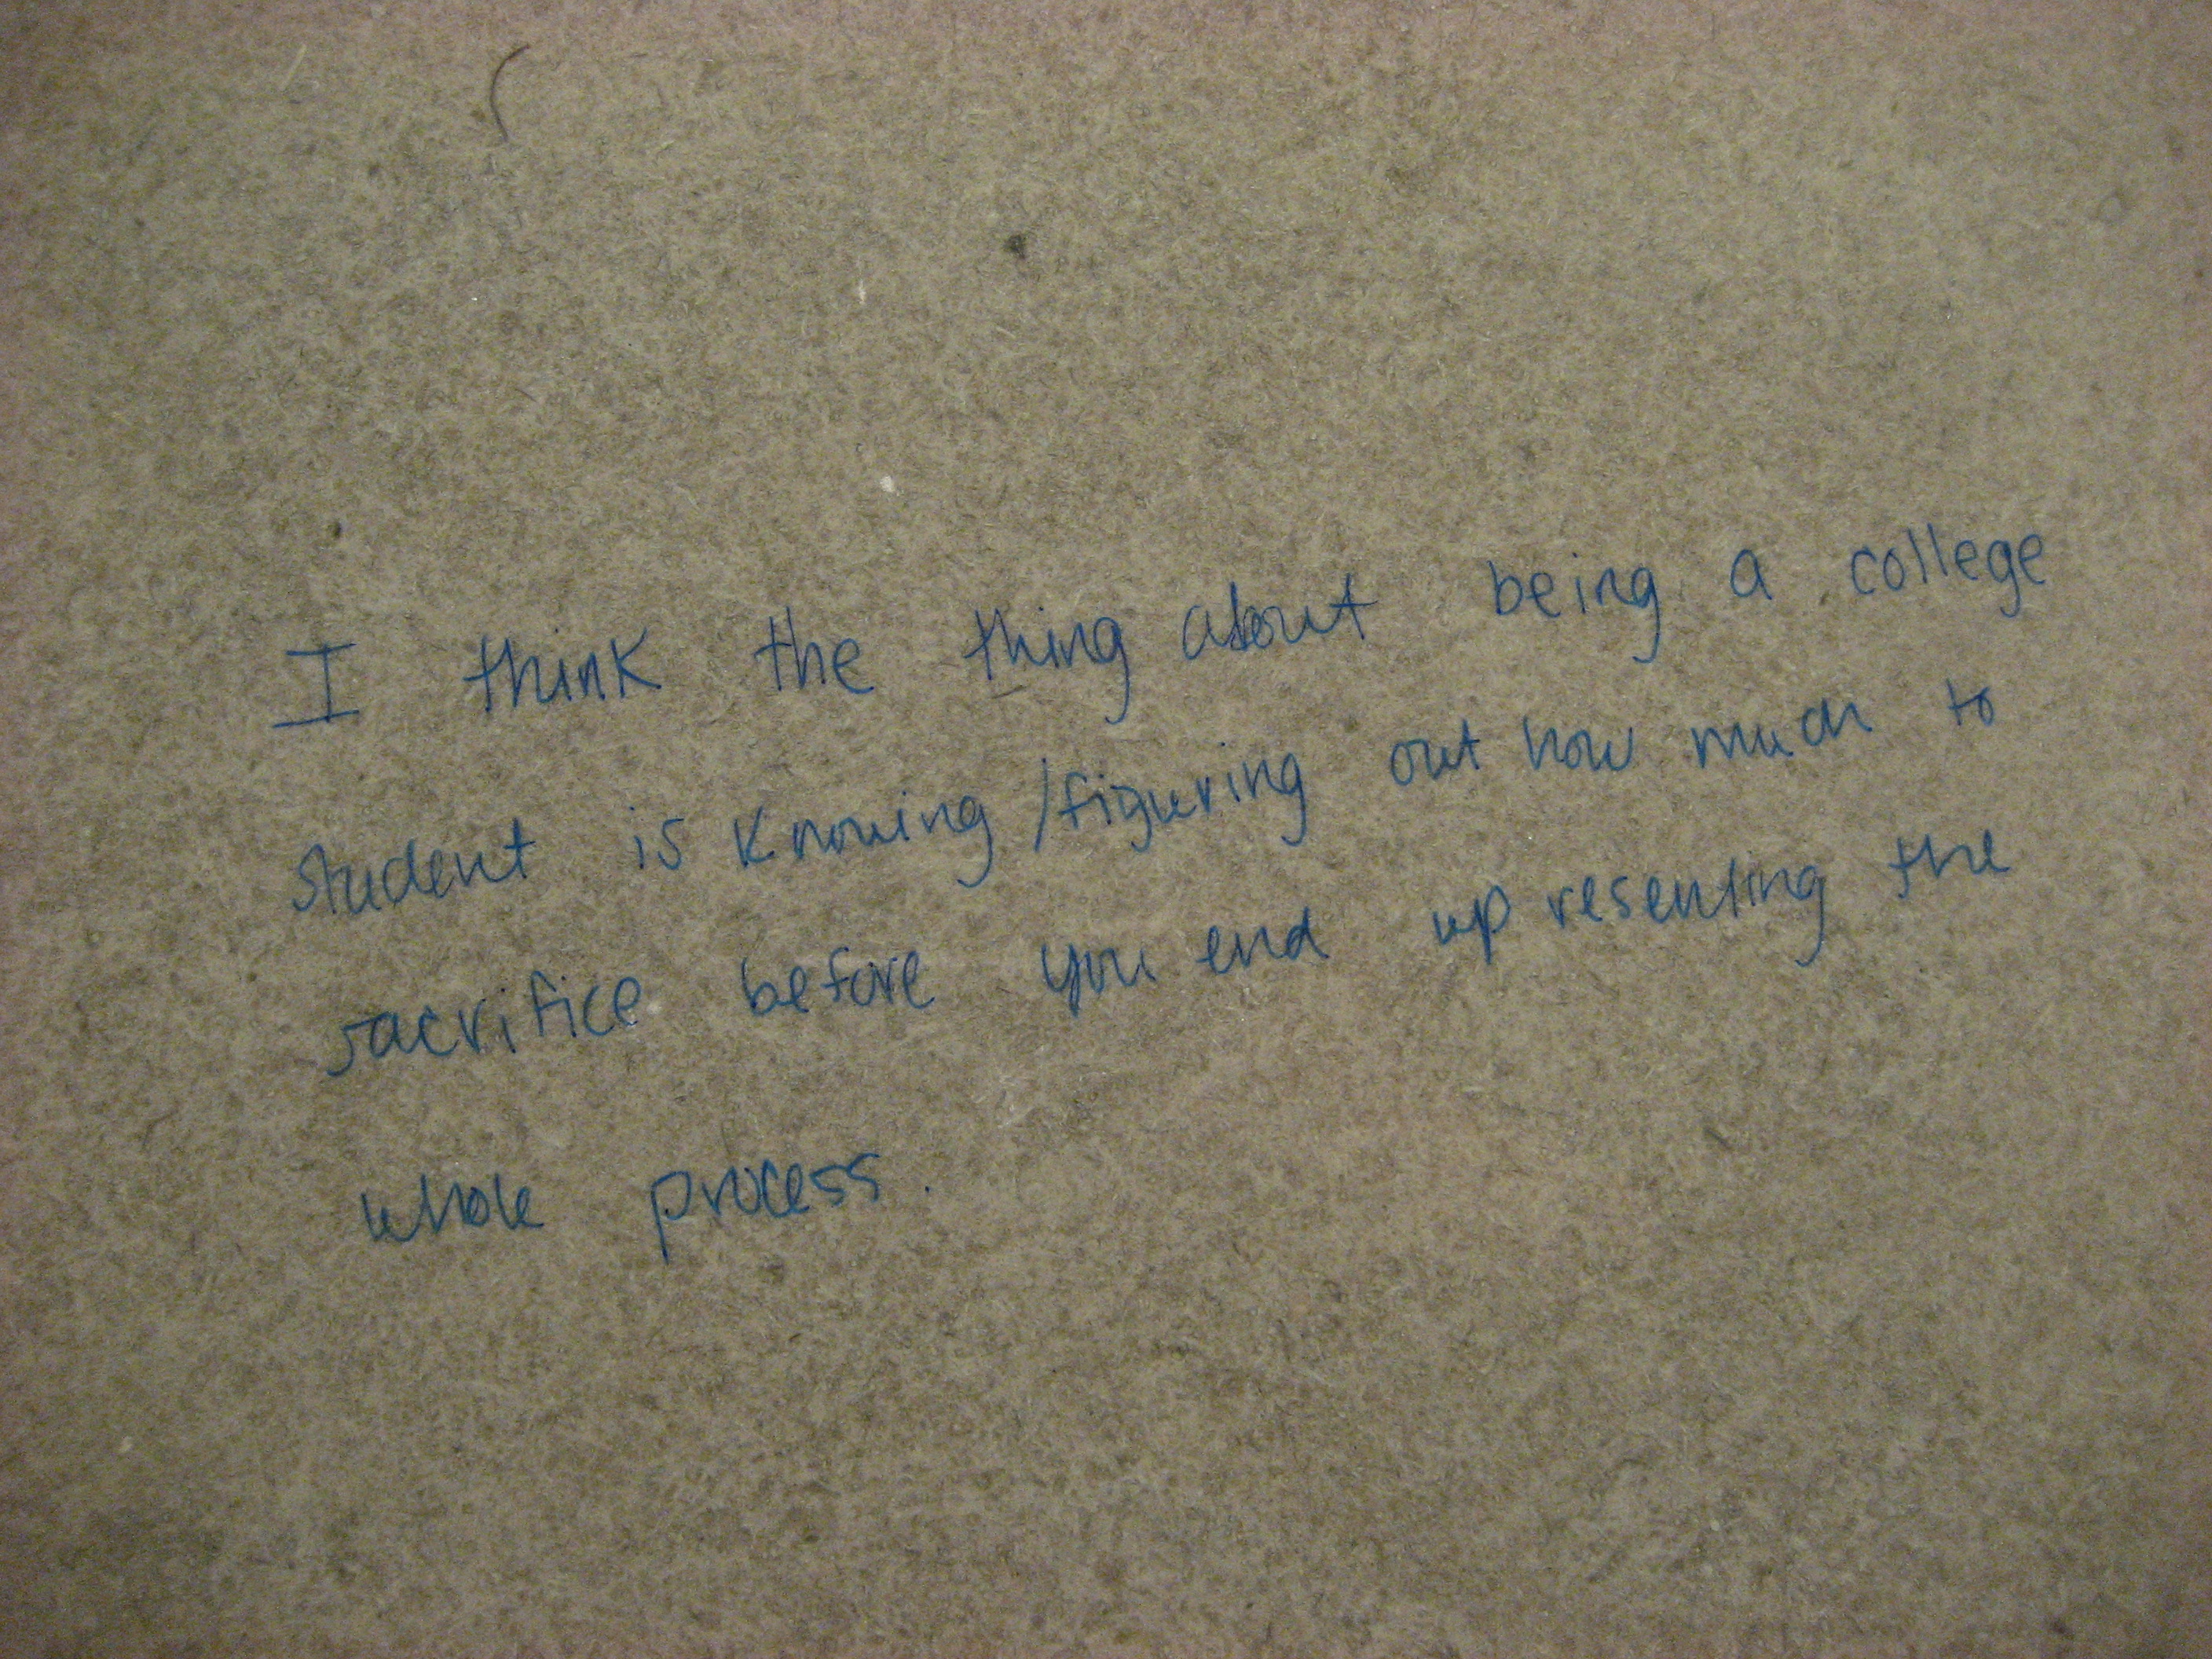 I think the thing about being a college
student is knowing/figuring out how much to
sacrifice before you end up resenting the
whole process.